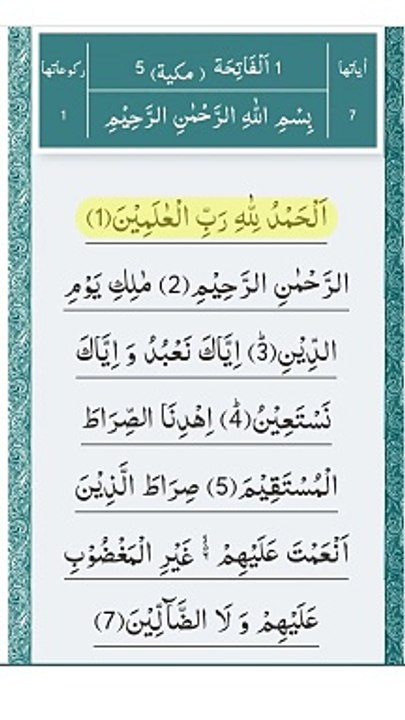 اٰیاتها 7
1 اَلْفَاتِحَة ( مکیة) 5
رکوعاتها 1
بِسْمِ اللهِ الرَّحْمٰنِ الرَّحِیْمِ
اَلْحَمْدُ لِلّٰهِ رَبِّ الْعٰلَمِیْنَ(1)
الرَّحْمٰنِ الرَّحِیْمِ(2) مٰلِكِ یَوْمِ
الدِّیْنِ(3ؕ) اِیَّاكَ نَعْبُدُ وَ اِیَّاكَ
نَسْتَعِیْنُ(4ؕ) اِهْدِنَا الصِّرَاطَ
الْمُسْتَقِیْمَ(5) صِرَاطَ الَّذِیْنَ
اَنْعَمْتَ عَلَیْهِمْ ۙ۬ غَیْرِ الْمَغْضُوْبِ
عَلَیْهِمْ وَ لَا الضَّآلِّیْنَ(7)